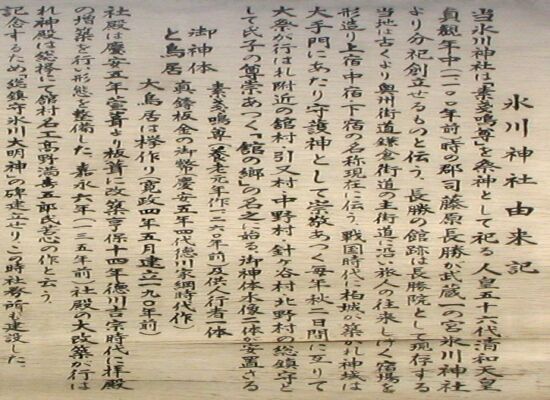 氷川神社由来記
当氷川神社は「素戔嗚尊」を祭神として祀る 人皇五十六代清和天皇
貞観年中(一一〇〇年前)時の郡司藤原長勝が武蔵一の宮氷川神社
より分祀創立せるものと伝う、長勝の館跡は長勝院として現存する
当地は古くより奥州街道鎌倉街道の主街道に沿い旅人の往来しげく宿場を
形造り上宿中宿下宿の名称現在に伝う、戦国時代に柏城が築かれ神域は
大手門にあたり守護神として崇敬あつく毎年秋二日間に亙りて
大祭の行は札附近の舘村 引又村 中野村 針ヶ谷村 北野村の総鎮守と
して氏子の尊崇あつく「舘の郷」の名之に始る、御神体木像一体が安置さる
御神体 素戔嗚尊(養老元年作一二六〇年前)及供人(行者)一体
と鳥居 真鍮板金の御幣慶安五年四代徳川家綱時代作
大鳥居は欅作り(寛政四年五月建立一九〇年前)
社殿は慶安五年萱葺より板葺に改築享保十四年徳川吉宗時代に拝殿
の増築を行い形態を整備した、嘉永六年(一二五年前)社殿の大改築が行は
れ神殿は総欅にて舘村名工高野萬五郎氏苦心の作と云う
記念するため「総鎮守氷川大明神」の碑建立せり、この時社務所も建設した